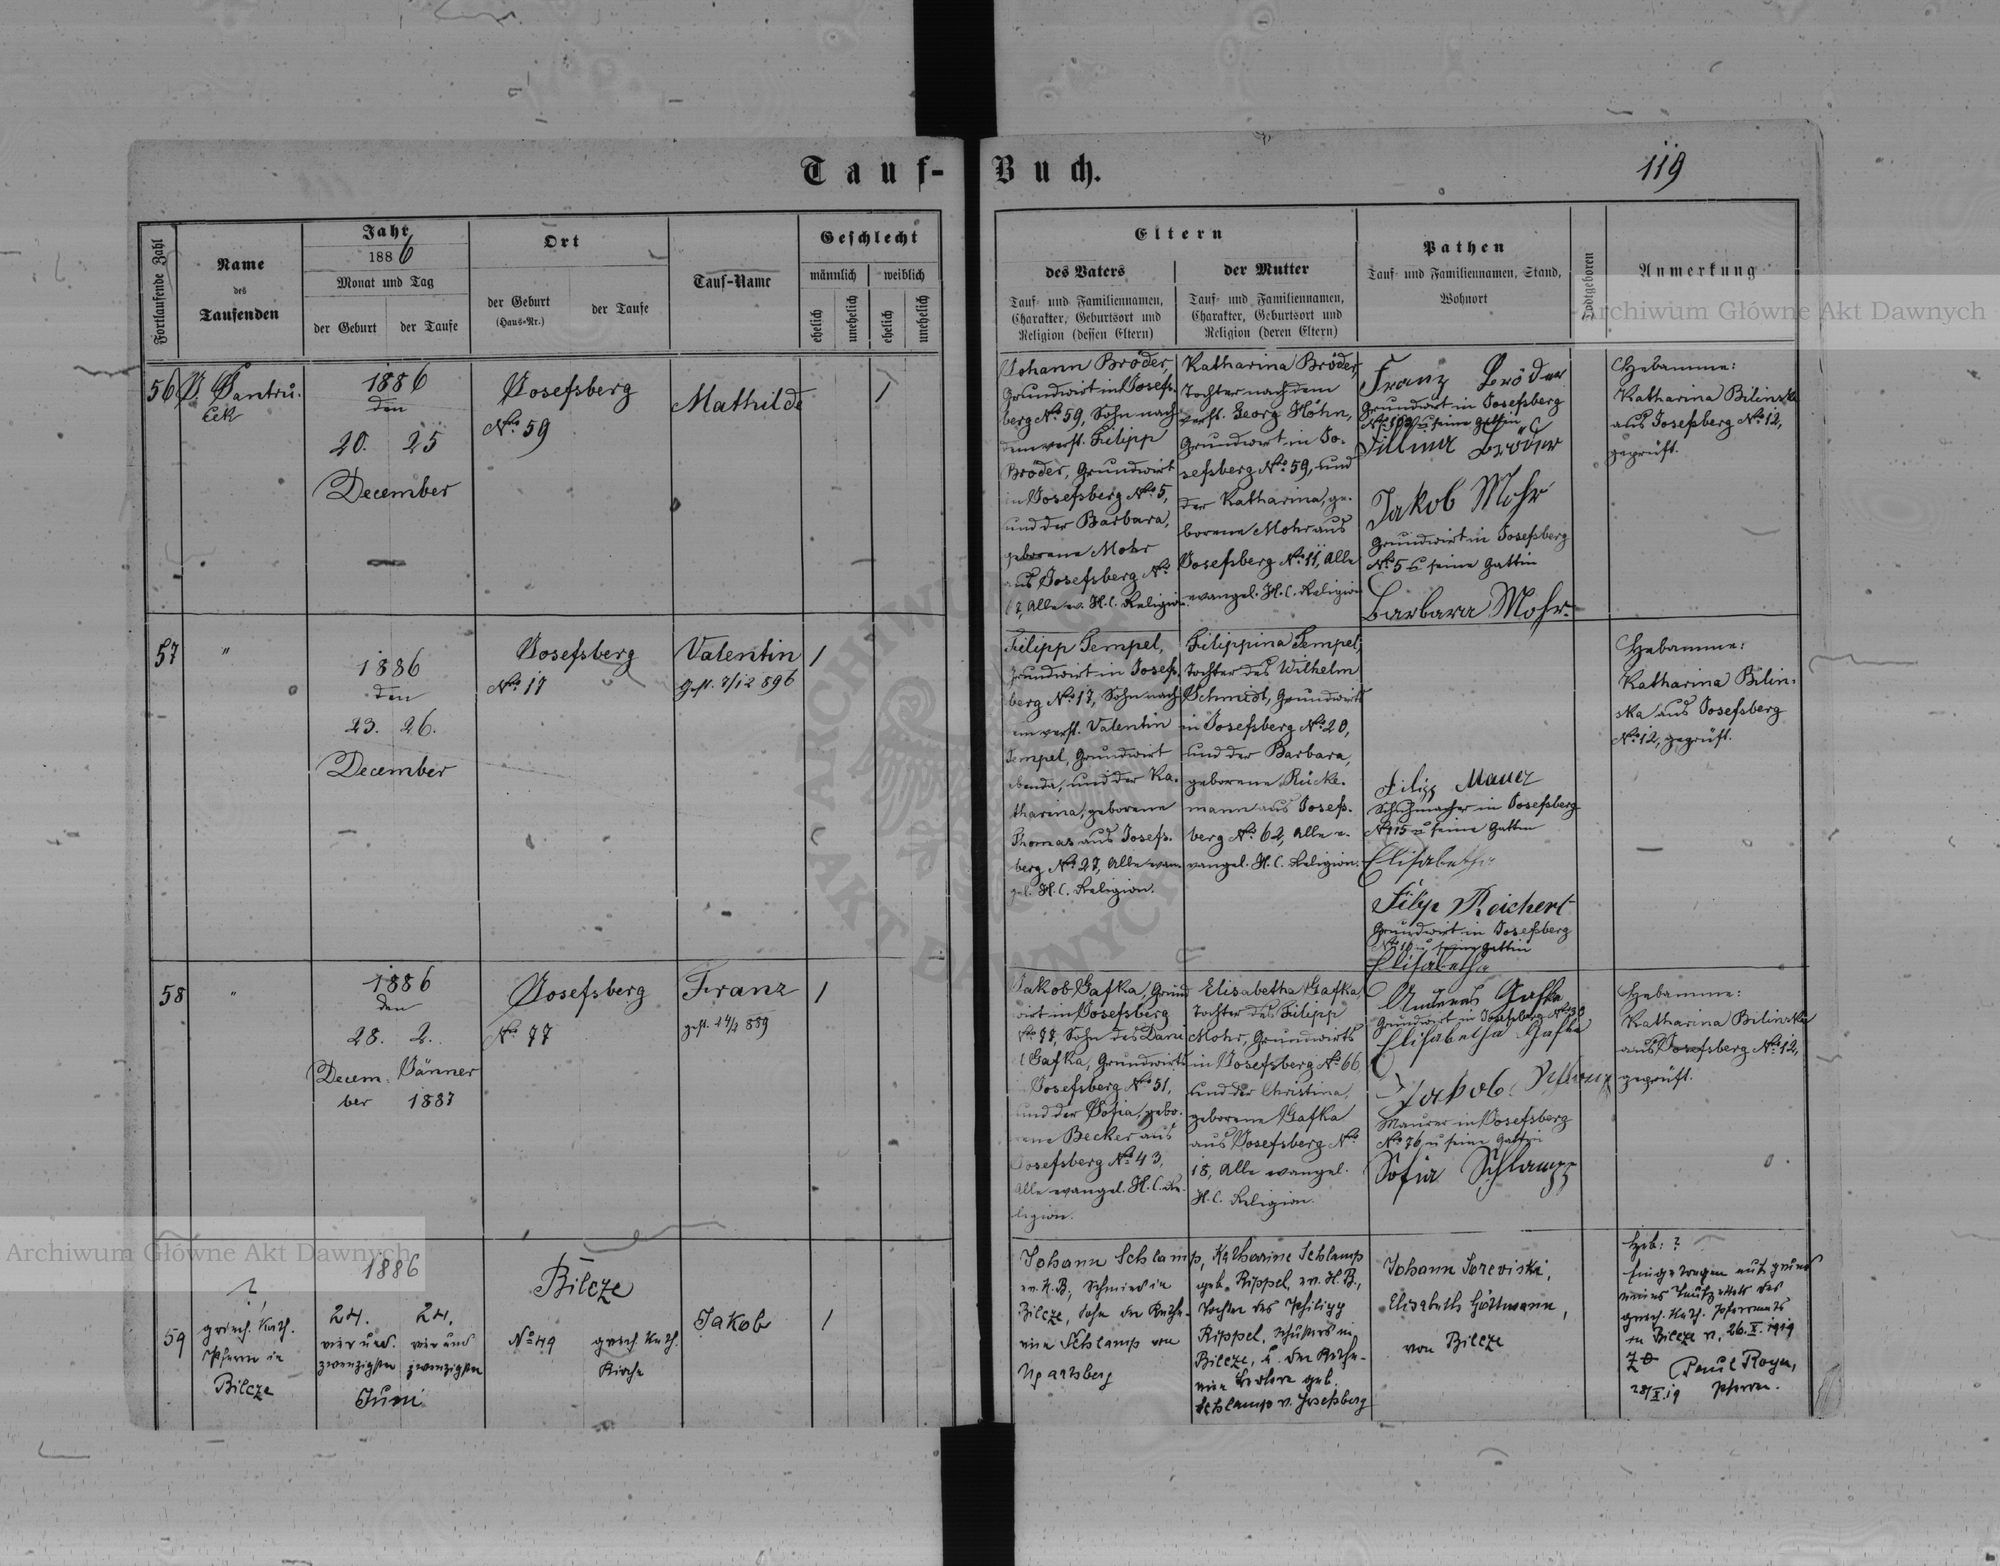 Tauf-Buch.
119
Fortlaufende Zahl
Name
des
Taufenden
Jahr
1886
Monat und Tag
der Geburt
der Taufe
Ort
der Geburt
(Haus-Nr.)
der Taufe
Tauf-Name
Geschlecht
männlich
weiblich
ehelich
unehelich
ehelich
unehelich
Eltern
des Vaters
Tauf- und Familiennamen,
Charakter, Geburtsort und
Religion (dessen Eltern)
der Mutter
Tauf- und Familiennamen,
Charakter, Geburtsort und
Religion (deren Eltern)
Pathen
Tauf- und Familiennamen, Stand,
Wohnort
Todtgeboren
Anmerkung
56
1886
den
20. 25
December
Josefsberg
No. 59
Mathilde
1
Johann Bröder,
Grundwirt in Josefs-
berg No. 59, Sohn nach
dem verst. Filipp
Bröder, Grundwirt
in Josefsberg No. 5,
und der Barbara,
geborene Mohr
aus Josefsberg No.
Alle ev. H.C. Religion
Katharina Bröder,
Tochter nach dem
verst. Georg Höhn,
Grundwirt in Jo-
sefsberg No. 59, und
der Katharina, ge-
borene Mohr aus
Josefsberg No. 11, Alle
evangel. H.C. Religion
Franz Bröder
Grundwirt in Josefsberg
u seine Gattin
Bröder
Jakob Mohr
Grundwirt in Josefsberg
No. 5 u seine Gattin
Barbara Mohr
Hebamme:
Katharina Bilinska
aus Josefsberg No. 12,
geprüft.
57
"
1886
den
23. 26.
December
Josefsberg
No. 17
Valentin
gest. 7/12 896
1
Filipp Tempel,
Grundwirt in Josefs-
berg No. 17, Sohn nach
dem verst. Valentin
Tempel, Grundwirt
ebenda, und der Ka-
tharina, geborene
Thomas aus Josefs-
berg No. 27, Alle evan-
gel. H.C. Religion.
Filippina Tempel,
Tochter des Wilhelm
Schmidt, Grundwirts
in Josefsberg No. 20,
und der Barbara,
geborene Rücke-
mann aus Josefs-
berg No. 62, Alle e-
vangel. H.C. Religion.
Filipp Mauer
Schuhmacher in Josefsberg
No. 15 u seine Gattin
Elisabetha
Filip Reichert
Grundwirt in Josefsberg
u seine Gattin
Elisabetha
Hebamme:
Katharina Bilin-
ska aus Josefsberg
No. 12, geprüft.
58
"
1886
den
28. 2.
Decem- Jänner
ber 1887
Josefsberg
No. 77
Franz
gest. 889
1
Jakob Gafka, Grund-
wirt in Josefsberg
No. 77, Sohn des Dani-
el Gafka, Grundwirts
in Josefsberg No. 51,
und der Sofia, gebo-
rene Becker aus
Josefsberg No. 43,
Alle evangel. H.C. Re-
ligion.
Elisabetha Gafka,
Tochter des Filipp
Mohr, Grundwirts
in Josefsberg No. 66
und der Christina,
geborene Gafka
aus Josefsberg No.
18, Alle evangel.
H.C. Religion.
Andreas Gafka
Grundwirt in Josefsberg
Elisabetha Gafka
Jakob
Maurer in Josefsberg
No. 76 u seine Gattin
Sofia Schlamp
Hebamme:
Katharina Bilinska
aus Josefsberg No. 12,
geprüft.
59
?
griech. kath.
Pfarrer in
Bilcze
1886
24. 24.
vier und- vier und
zwanzigsten zwanzigsten
Juni
Bilcze
No 49
griech. kath.
Kirche
Jakob
1
Johann Schlamp,
ev. H.B., Schmied in
Bilcze, Sohn der Katha-
rina Schlamp von
Ugartsberg
Katharine Schlamp
geb. Rippel, ev. H.B.,
Tochter des Philipp
Rippel, Schusters in
Bilcze, u. der Katha-
rina geb.
Schlamp v. Josefsberg
Johann
Elisabeth Göttmann,
von Bilcze
Heb: ?
Eingetragen auf Grund
eines Taufzettels des
griech. kath. Pfarramts
in Bilcze v. 26.X.1919
Paul Royer,
28/X.19 Pfarrer.
Archiwum Główne Akt Dawnych
Archiwum Główne Akt Dawnych
ARCHIWUM
AKT DAWNYCH